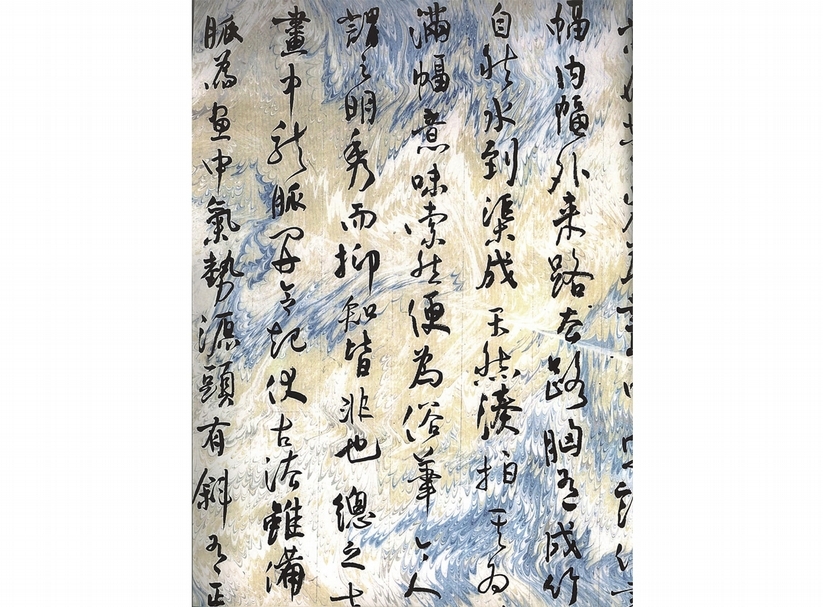 幅内幅外来路去路胸有成竹
自然水到渠成天然湊拍其為
滿幅意味索然便為俗筆令人
謂之明秀而抑知皆非也總之
畫中龍脈開合起伏古法雖備
脈為畫中氣勢源頭有斜有正